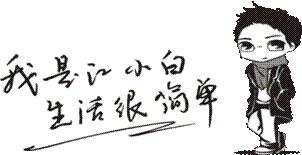 我是江小白
生活很简单